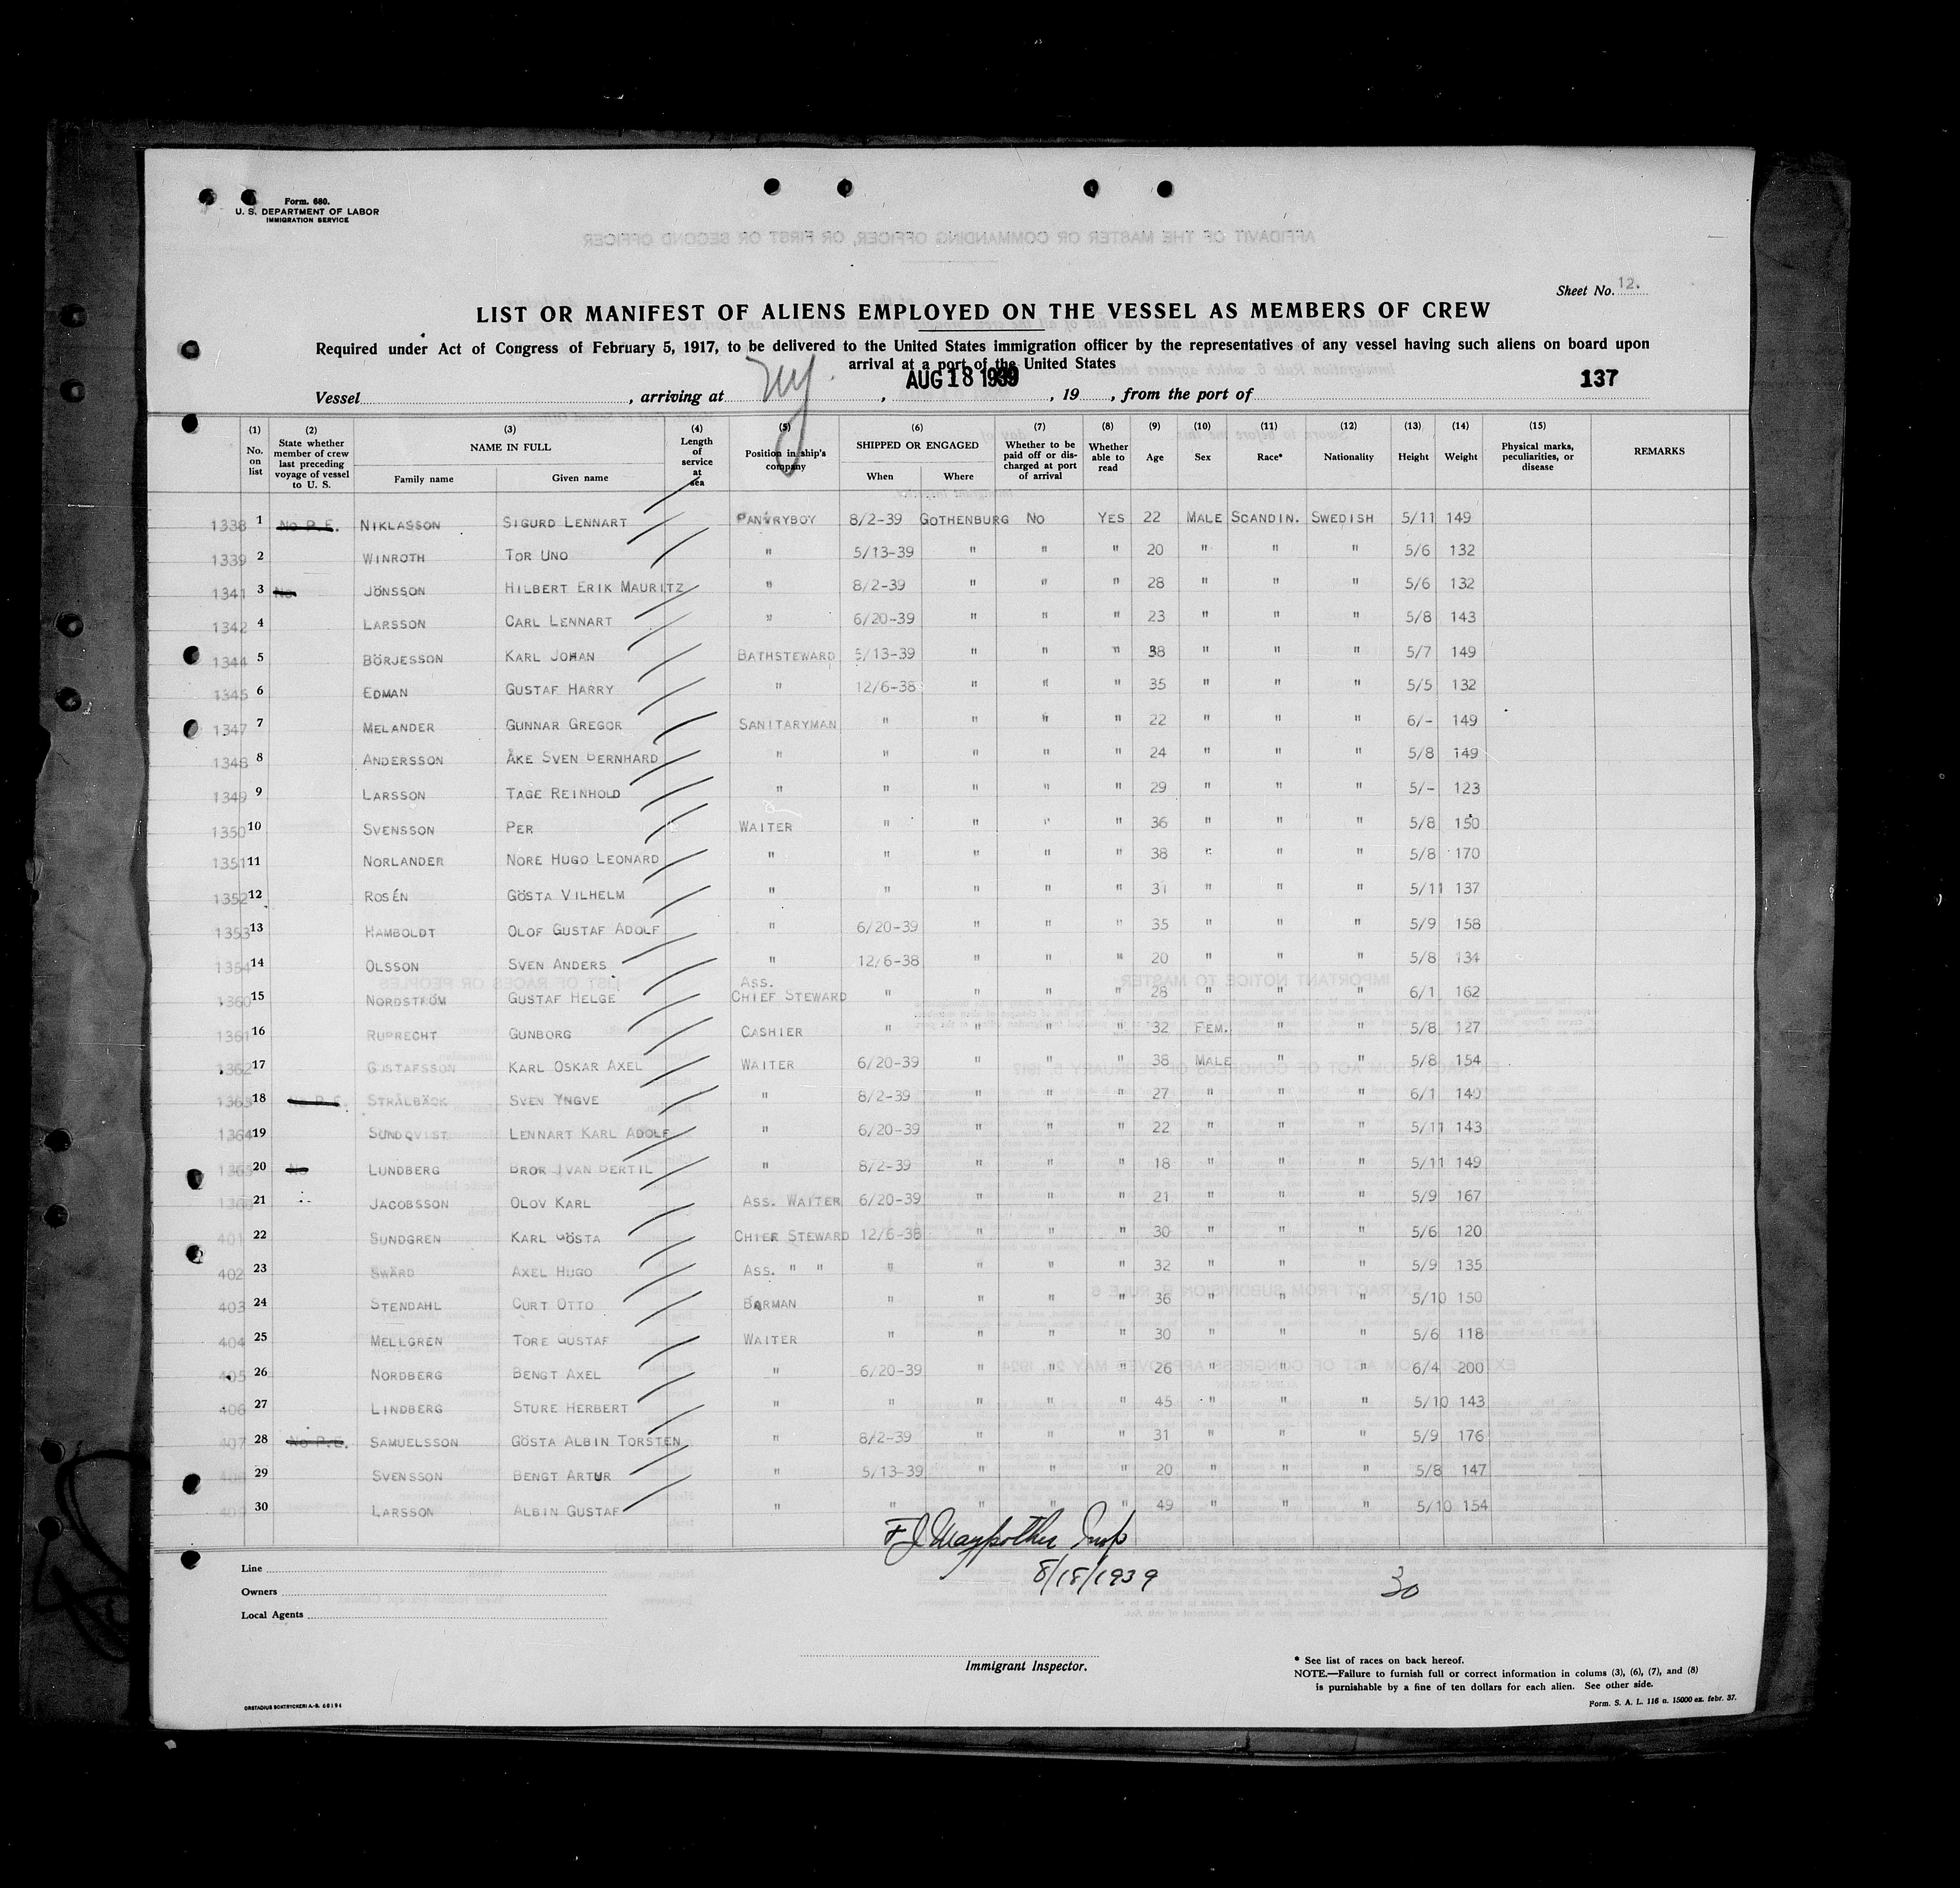 Form. 680.
U. S. DEPARTMENT OF LABOR
IMMIGRATION SERVICE
Sheet No. 12.
LIST OR MANIFEST OF ALIENS EMPLOYED ON THE VESSEL AS MEMBERS OF CREW
Required under Act of Congress of February 5, 1917, to be delivered to the United States immigration officer by the representatives of any vessel having such aliens on board upon
arrival at a port of the United States
Vessel , arriving at Ny. , AUG 18 1939 , 19 , from the port of 137
(1) No. on list (2) State whether member of crew last preceding voyage of vessel to U. S. (3) NAME IN FULL Family name Given name (4) Length of service at sea (5) Position in ship's company (6) SHIPPED OR ENGAGED When Where (7) Whether to be paid off or discharged at port of arrival (8) Whether able to read (9) Age (10) Sex (11) Race* (12) Nationality (13) Height (14) Weight (15) Physical marks, peculiarities, or disease REMARKS
1338 1 No P.E. NIKLASSON SIGURD LENNART PANTRYBOY 8/2-39 GOTHENBURG NO YES 22 MALE SCANDIN. SWEDISH 5/11 149
1339 2 WINROTH TOR UNO " 5/13-39 " " " 20 " " " 5/6 132
1341 3 No JÖNSSON HILBERT ERIK MAURITZ " 8/2-39 " " " 28 " " " 5/6 132
1342 4 LARSSON CARL LENNART " 6/20-39 " " " 23 " " " 5/8 143
1344 5 BÖRJESSON KARL JOHAN BATHSTEWARD 5/13-39 " " " 38 " " " 5/7 149
1345 6 EDMAN GUSTAF HARRY " 12/6-38 " " " 35 " " " 5/5 132
1347 7 MELANDER GUNNAR GREGOR SANITARYMAN " " " " 22 " " " 6/- 149
1348 8 ANDERSSON ÅKE SVEN BERNHARD " " " " " 24 " " " 5/8 149
1349 9 LARSSON TAGE REINHOLD " " " " " 29 " " " 5/- 123
1350 10 SVENSSON PER WAITER " " " " 36 " " " 5/8 150
1351 11 NORLANDER NORE HUGO LEONARD " " " " " 38 " " " 5/8 170
1352 12 ROSÉN GÖSTA VILHELM " " " " " 31 " " " 5/11 137
1353 13 HAMBOLDT OLOF GUSTAF ADOLF " 6/20-39 " " " 35 " " " 5/9 158
1354 14 OLSSON SVEN ANDERS " 12/6-38 " " " 20 " " " 5/8 134
1360 15 NORDSTRÖM GUSTAF HELGE ASS. CHIEF STEWARD " " " " 28 " " " 6/1 162
1361 16 RUPRECHT GUNBORG CASHIER " " " " 32 FEM. " " 5/8 127
1362 17 GUSTAFSSON KARL OSKAR AXEL WAITER 6/20-39 " " " 38 MALE " " 5/8 154
1363 18 No P.E. STRÅLBÄCK SVEN YNGVE " 8/2-39 " " " 27 " " " 6/1 140
1364 19 SUNDQVIST LENNART KARL ADOLF " 6/20-39 " " " 22 " " " 5/11 143
20 No LUNDBERG BROR IVAN BERTIL " 8/2-39 " " " 18 " " " 5/11 149
21 JACOBSSON OLOV KARL ASS. WAITER 6/20-39 " " " 21 " " " 5/9 167
401 22 SUNDGREN KARL GÖSTA CHIEF STEWARD 12/6-38 " " " 30 " " " 5/6 120
402 23 SWÄRD AXEL HUGO ASS. " " " " " " 32 " " " 5/9 135
403 24 STENDAHL CURT OTTO BARMAN " " " " 36 " " " 5/10 150
404 25 MELLGREN TORE GUSTAF WAITER " " " " 30 " " " 5/6 118
405 26 NORDBERG BENGT AXEL " 6/20-39 " " " 26 " " " 6/4 200
406 27 LINDBERG STURE HERBERT " " " " " 45 " " " 5/10 143
407 28 No P.E. SAMUELSSON GÖSTA ALBIN TORSTEN " 8/2-39 " " " 31 " " " 5/9 176
29 SVENSSON BENGT ARTUR " 5/13-39 " " " 20 " " " 5/8 147
409 30 LARSSON ALBIN GUSTAF " " " " " 49 " " " 5/10 154
F J Maypother Insp
8/18/1939 30
Line
Owners
Local Agents
Immigrant Inspector.
* See list of races on back hereof.
NOTE.—Failure to furnish full or correct information in colums (3), (6), (7), and (8)
is punishable by a fine of ten dollars for each alien. See other side.
ORSTADIUS BOKTRYCKERI A.-B. 68194
Form. S. A. L. 116 a. 15000 ex. febr. 37.